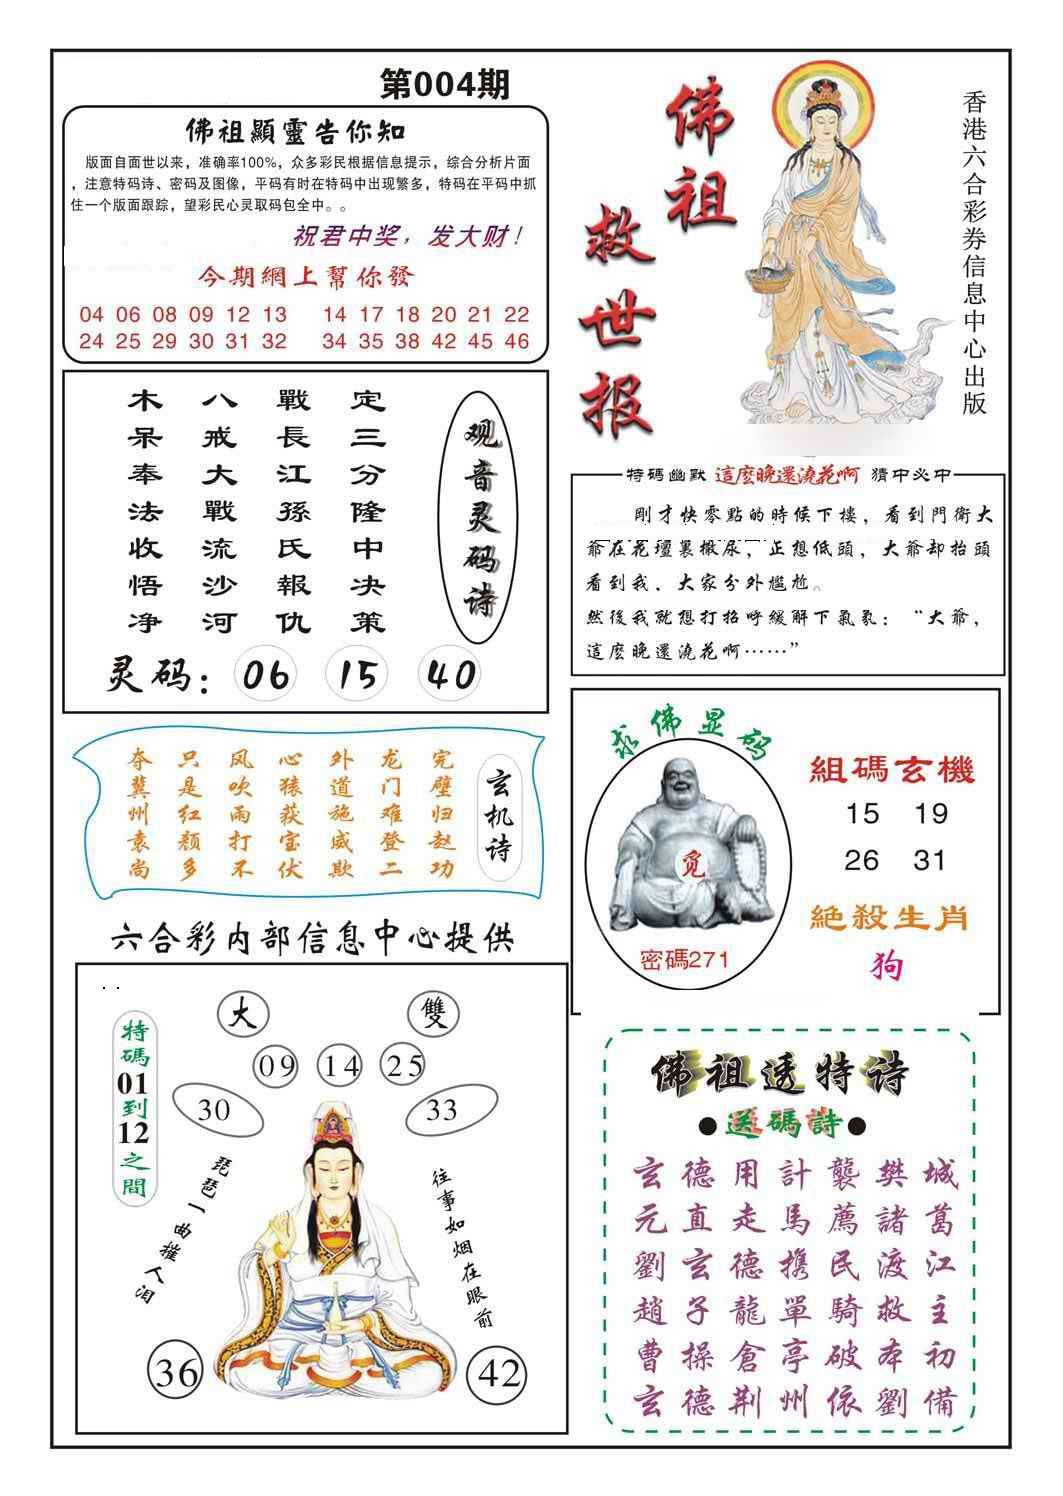 第004期
佛祖顯靈告你知
版面自面世以来，准确率100%，众多彩民根据信息提示，综合分析片面
，注意特码诗、密码及图像，平码有时在特码中出现繁多，特码在平码中抓
住一个版面跟踪，望彩民心灵取码包全中。。
祝君中奖，发大财！
今期網上幫你發
04 06 08 09 12 13 14 17 18 20 21 22
24 25 29 30 31 32 34 35 38 42 45 46
佛祖
救世报
香港六合彩券信息中心出版
观音灵码诗
定三分隆中决策
戰長江孫氏報仇
八戒大戰流沙河
木呆奉法收悟净
灵码：06 15 40
特碼幽默 這麽晚還澆花啊 猜中必中
剛才快零點的時候下樓，看到門衛大
爺在花壇裏撒尿，正想低頭，大爺却抬頭
看到我、大家分外尴尬。
然後我就想打招呼緩解下氣氛：“大爺，
這麽晚還澆花啊……”
玄机诗
完璧归赵功
龙门难登二
外道施威欺
心猿获宝伏
风吹雨打不
只是红颜多
夺冀州袁尚
求佛显码
觅
密碼271
組碼玄機
15 19
26 31
絕殺生肖
狗
六合彩内部信息中心提供
特碼01到12之間
大 雙
09 14 25
30 33
琵琶一曲摧人泪
往事如烟在眼前
36 42
佛祖透特诗
●送碼詩●
玄德用計襲樊城
元直走馬薦諸葛
劉玄德携民渡江
趙子龍單騎救主
曹操倉亭破本初
玄德荆州依劉備